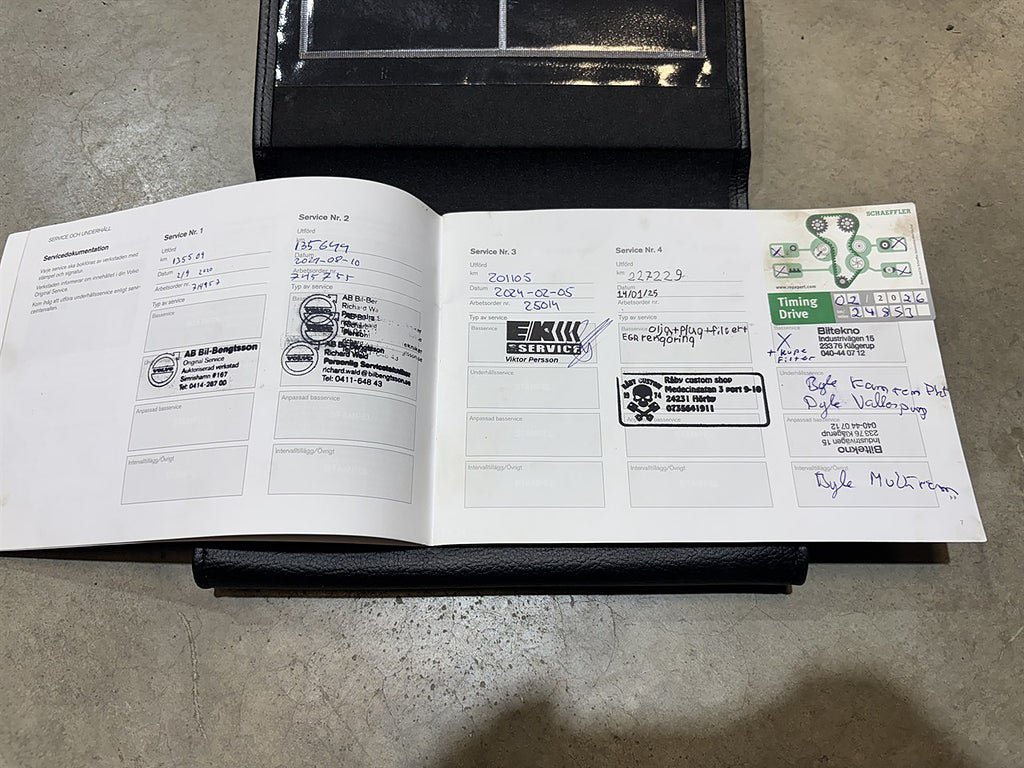 SERVICE OCH UNDERHÅLL
Servicedokumentation
Varje service ska bokföras av verkstaden med
stämpel och signatur.
Verkstaden informerar om innehållet i din Volvo
Original Service.
Kom ihåg att utföra underhållsservice enligt serv-
iceintervallen.
Service Nr. 1
Utförd
km
Datum 2/9 2020
Arbetsorder nr.
Typ av service
Basservice
AB Bil-Bengtsson
Original Service
Auktoriserad verkstad
Simrishamn #167
Tel: 0414-287 00
Anpassad basservice
Intervalltillägg/Övrigt
Service Nr. 2
Utförd
km
135644
Datum
Arbetsorder nr.
Typ av service
AB Bil-Ber
Richard Wald
Personlig Servicetekniker
richard.wald@bilbengtsson.se
Tel: 0411-648 43
Anpassad basservice
Intervalltillägg/Övrigt
Service Nr. 3
Utförd
km 201105
Datum 2024-02-05
Arbetsorder nr. 25014
Typ av service
Basservice
EK
SERVICE
Viktor Persson
Anpassad basservice
Intervalltillägg/Övrigt
Service Nr. 4
Utförd
km 227229
Datum
14/01/25
Arbetsorder nr.
Typ av service
Basservice olja+plug+filter+
EGR rengöring
Råby custom shop
24231 Hörby
0735641911
Anpassad basservice
Intervalltillägg/Övrigt
SCHAEFFLER
www.repxpert.com
Timing
Drive
02/2026
24853
Biltekno
Industrivägen 15
233 76 Klågerup
040-44 07 12
X
+ Kupe
Filter
Byte Kamrem
Byte Vattenpump
Biltekno
Industrivägen 15
233 76 Klågerup
040-44 07 12
Byte Multirem
7